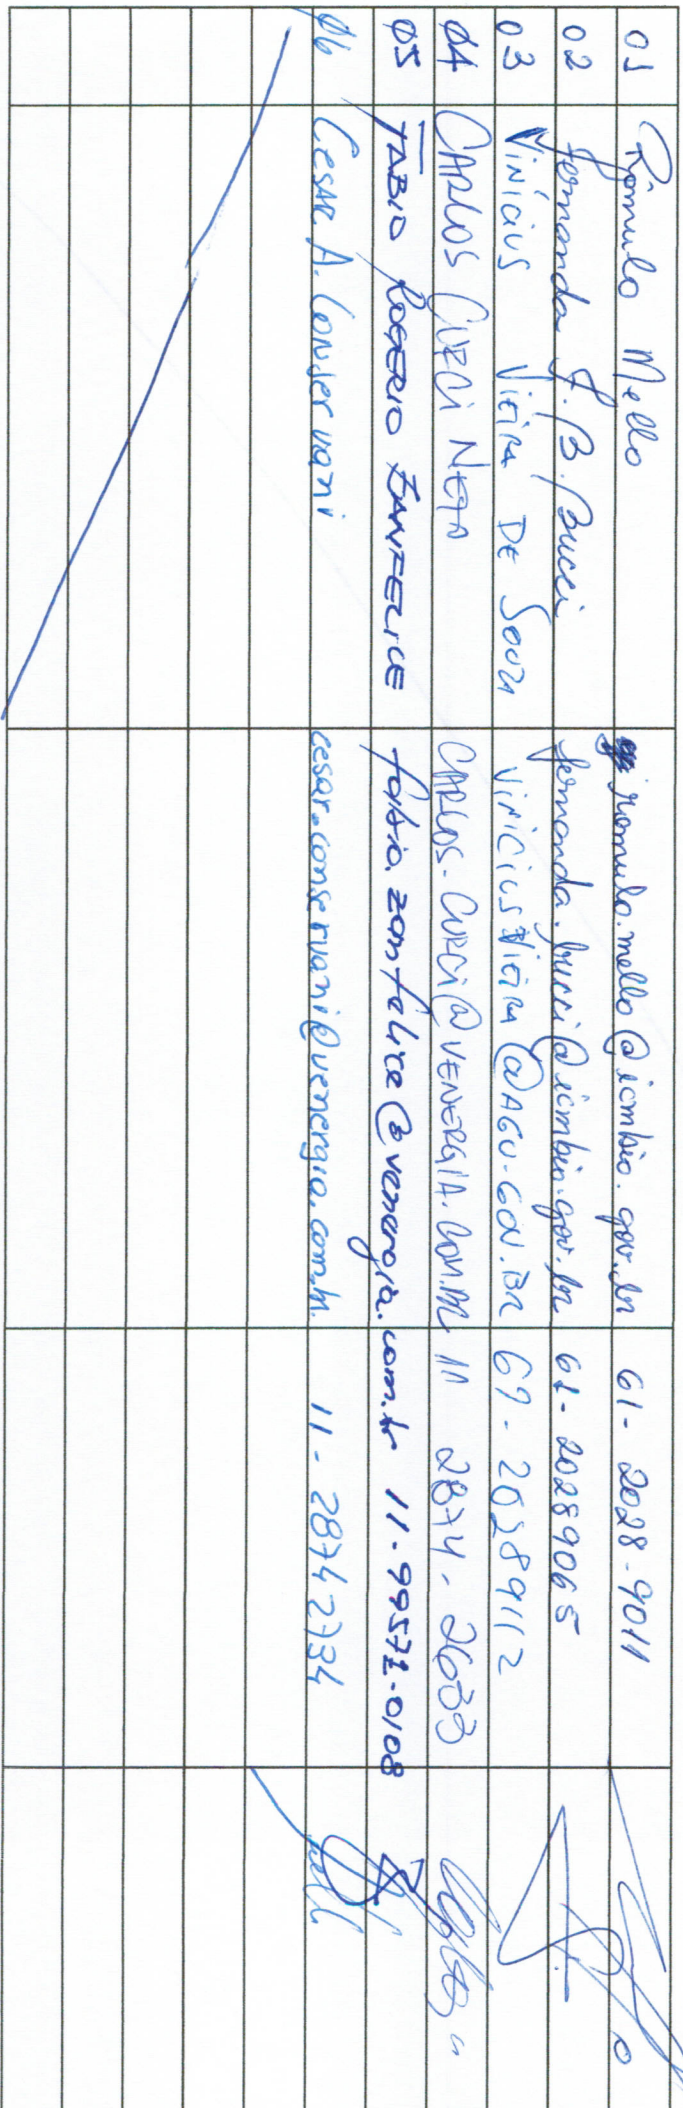 01 Rômulo Mello romulo.mello@icmbio.gov.br 61-2028-9011
02 Fernanda F. B. Bucci fernanda.bucci@icmbio.gov.br 61-20289065
03 Vinícius Vieira De Souza vinicius.vieira@AGU.GOV.BR 61-20289112
04 CARLOS CURCI NETO CARLOS.CURCI@VENERGIA.COM.BR 11 2874-2633
05 FABIO ROGERIO ZANFELICE fabio.zanfelice@venergia.com.br 11-99572-0108
06 Cesar A. Conservani cesar.conservani@venergia.com.br. 11-28742734